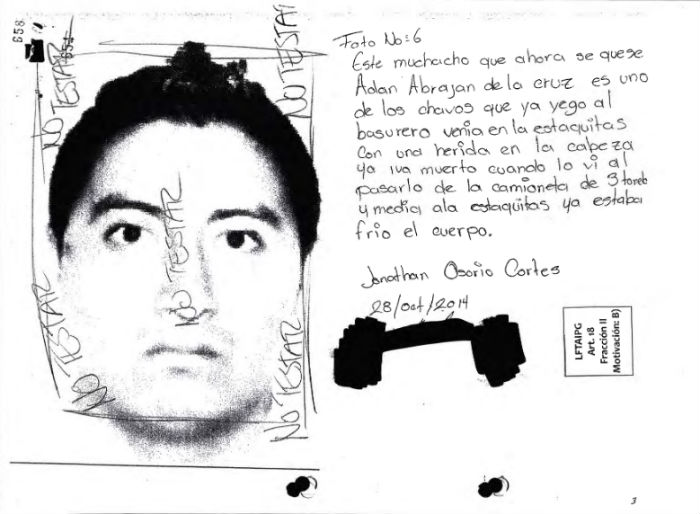 658
NO TESTAR
NO TESTAR
NO TESTAR
NO TESTAR
NO TESTAR
NO TESTAR
Foto No:6
Este muchacho que ahora se que se
Adan Abrajan de la cruz es uno
de los chavos que ya yego al
basurero venia en la estaquitas
Con una herida en la cabeza
ya iva muerto cuando lo vi al
pasarlo de la camioneta de 3 tonela
y media ala estaquitas ya estaba
frio el cuerpo.
Jonathan Osorio Cortes
28/Oct/2014
LFTAIPG
Art. 18
Fracción II
Motivación: B)
3